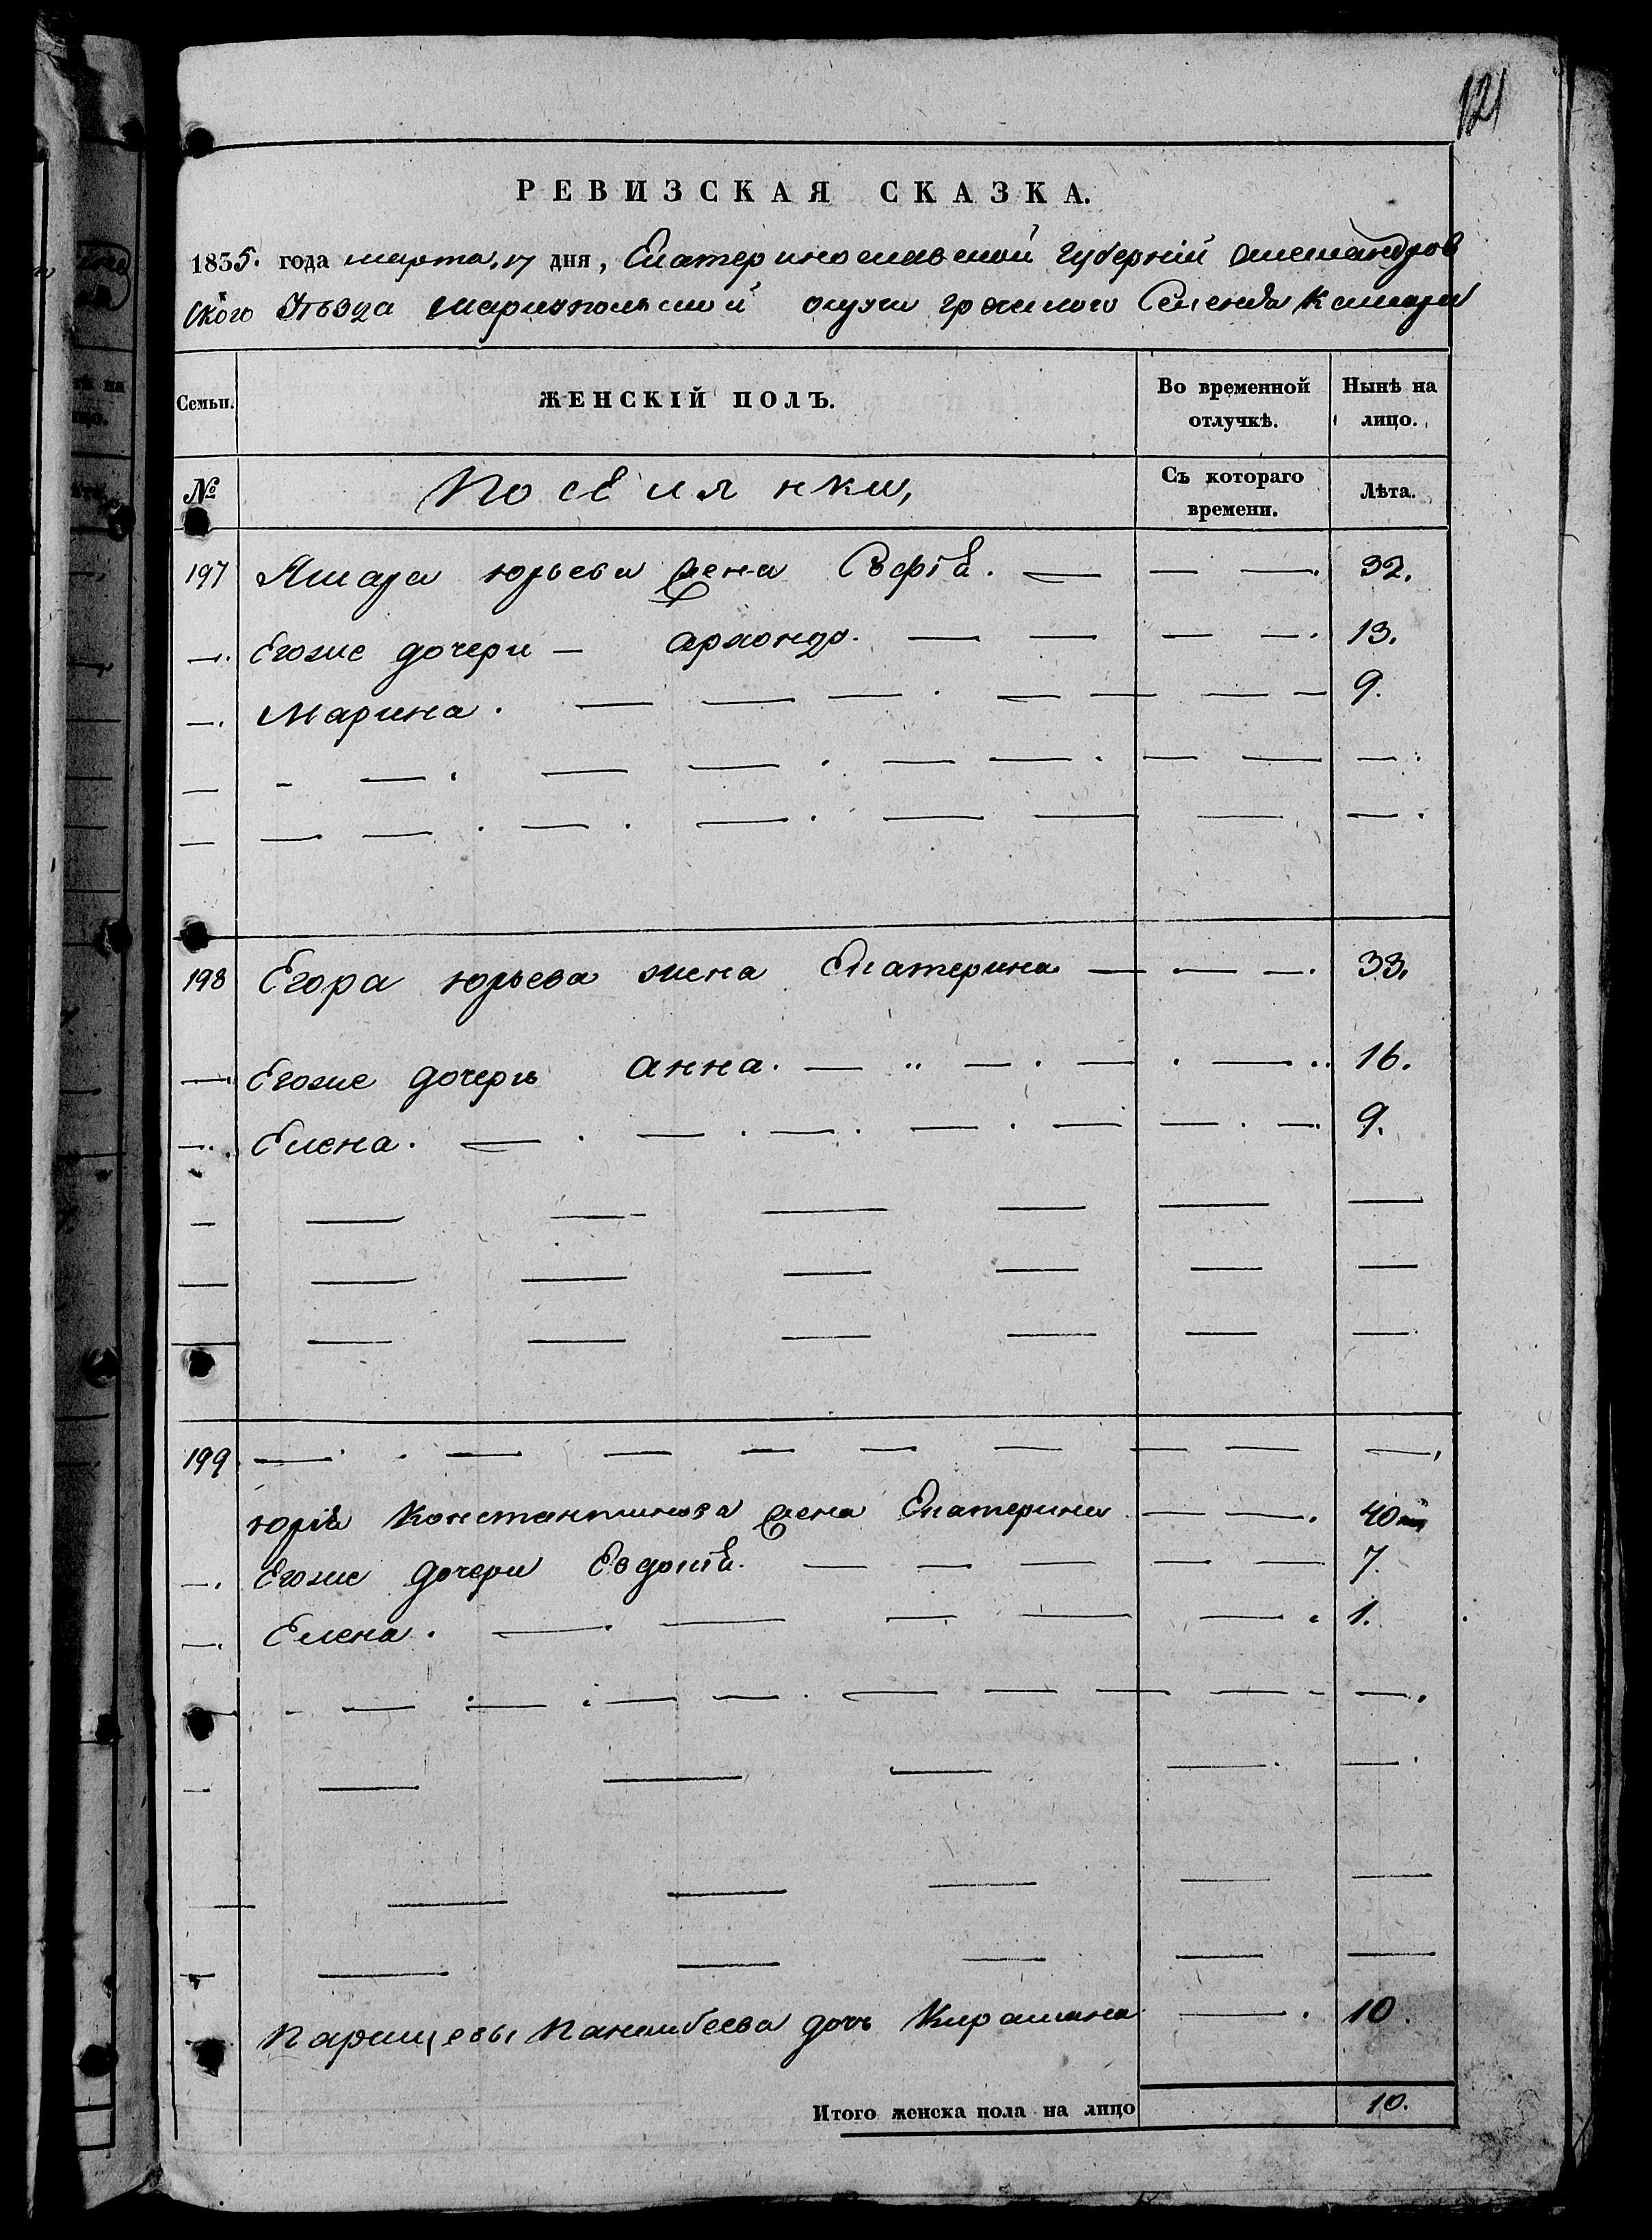 121
РЕВИЗСКАЯ СКАЗКА.
1835. года марта, 17 дня, Екатеринославской Губерніи Александров
ского Уѣзда Мариупольской округи греческого Селенія
Семьи. ЖЕНСКІЙ ПОЛЪ. Во временной отлучкѣ. Нынѣ на лицо.
№ Поселянки, Съ котораго времени. Лѣта.
197 юрьева жена Софія. — — — 32.
—. Егоже дочери — архондо. — — — —. 13.
—. Марина. — — — . — — — — 9.
— - —. — — . — —. — — —.
— — — . — . — . — — — —.
198 Егора юрьева жена Екатерина — — —. 33.
— Егоже дочерь анна. — „ — . — . — .. 16.
—. Елена. — . — . — . — . — — . —. 9.
— — — — — — —
— — — — — — —
— — — — — — —
199 — . — — — — — — — —,
юрія Константинова жена Екатерина. — —. 40
—. Егоже дочери Евдокія. — — — — — 7.
—. Елена. — . — — — — . 1.
- — : — : — — . — — — — - —.
— — — — —. —.
— — — — — —
— — — — — —
дочь — . 10.
Итого женска пола на лицо 10.